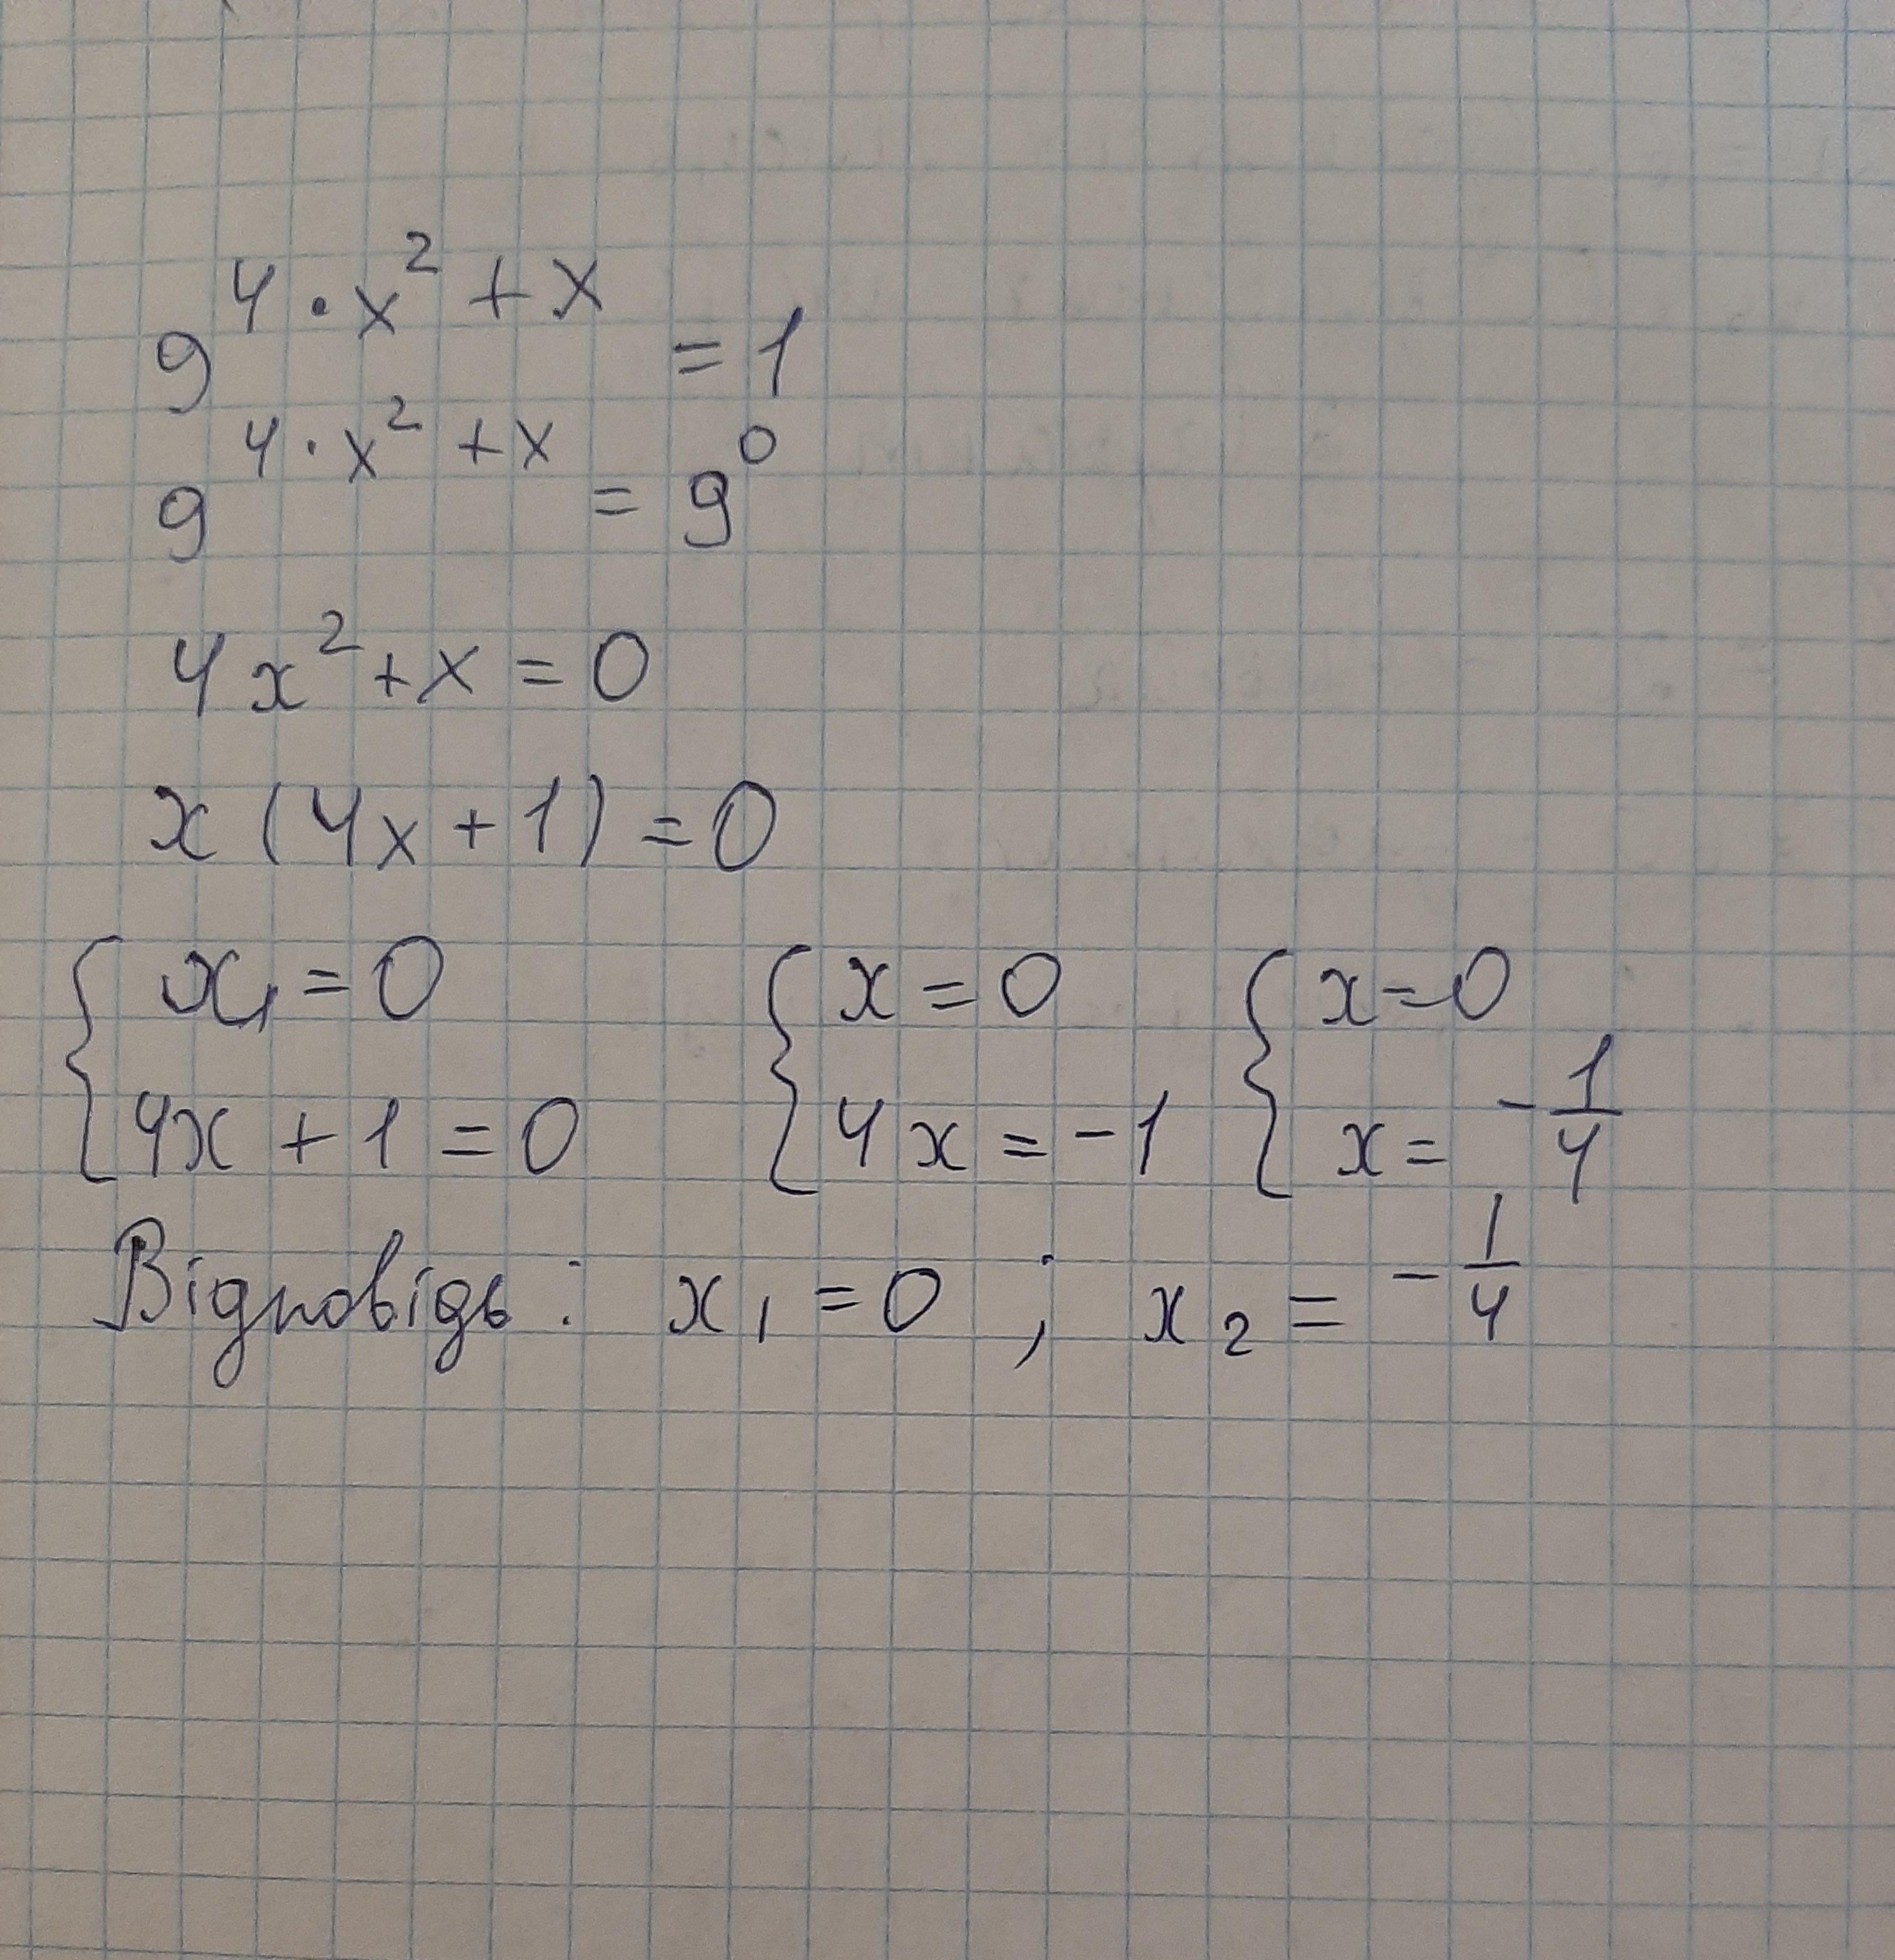 9^{4·x²+x} = 1
9^{4·x²+x} = 9⁰
4x²+x=0
x(4x+1)=0
{x₁=0 {x=0 {x=0
{4x+1=0 {4x=-1 {x=-1/4
Відповідь: x₁=0 ; x₂=-1/4